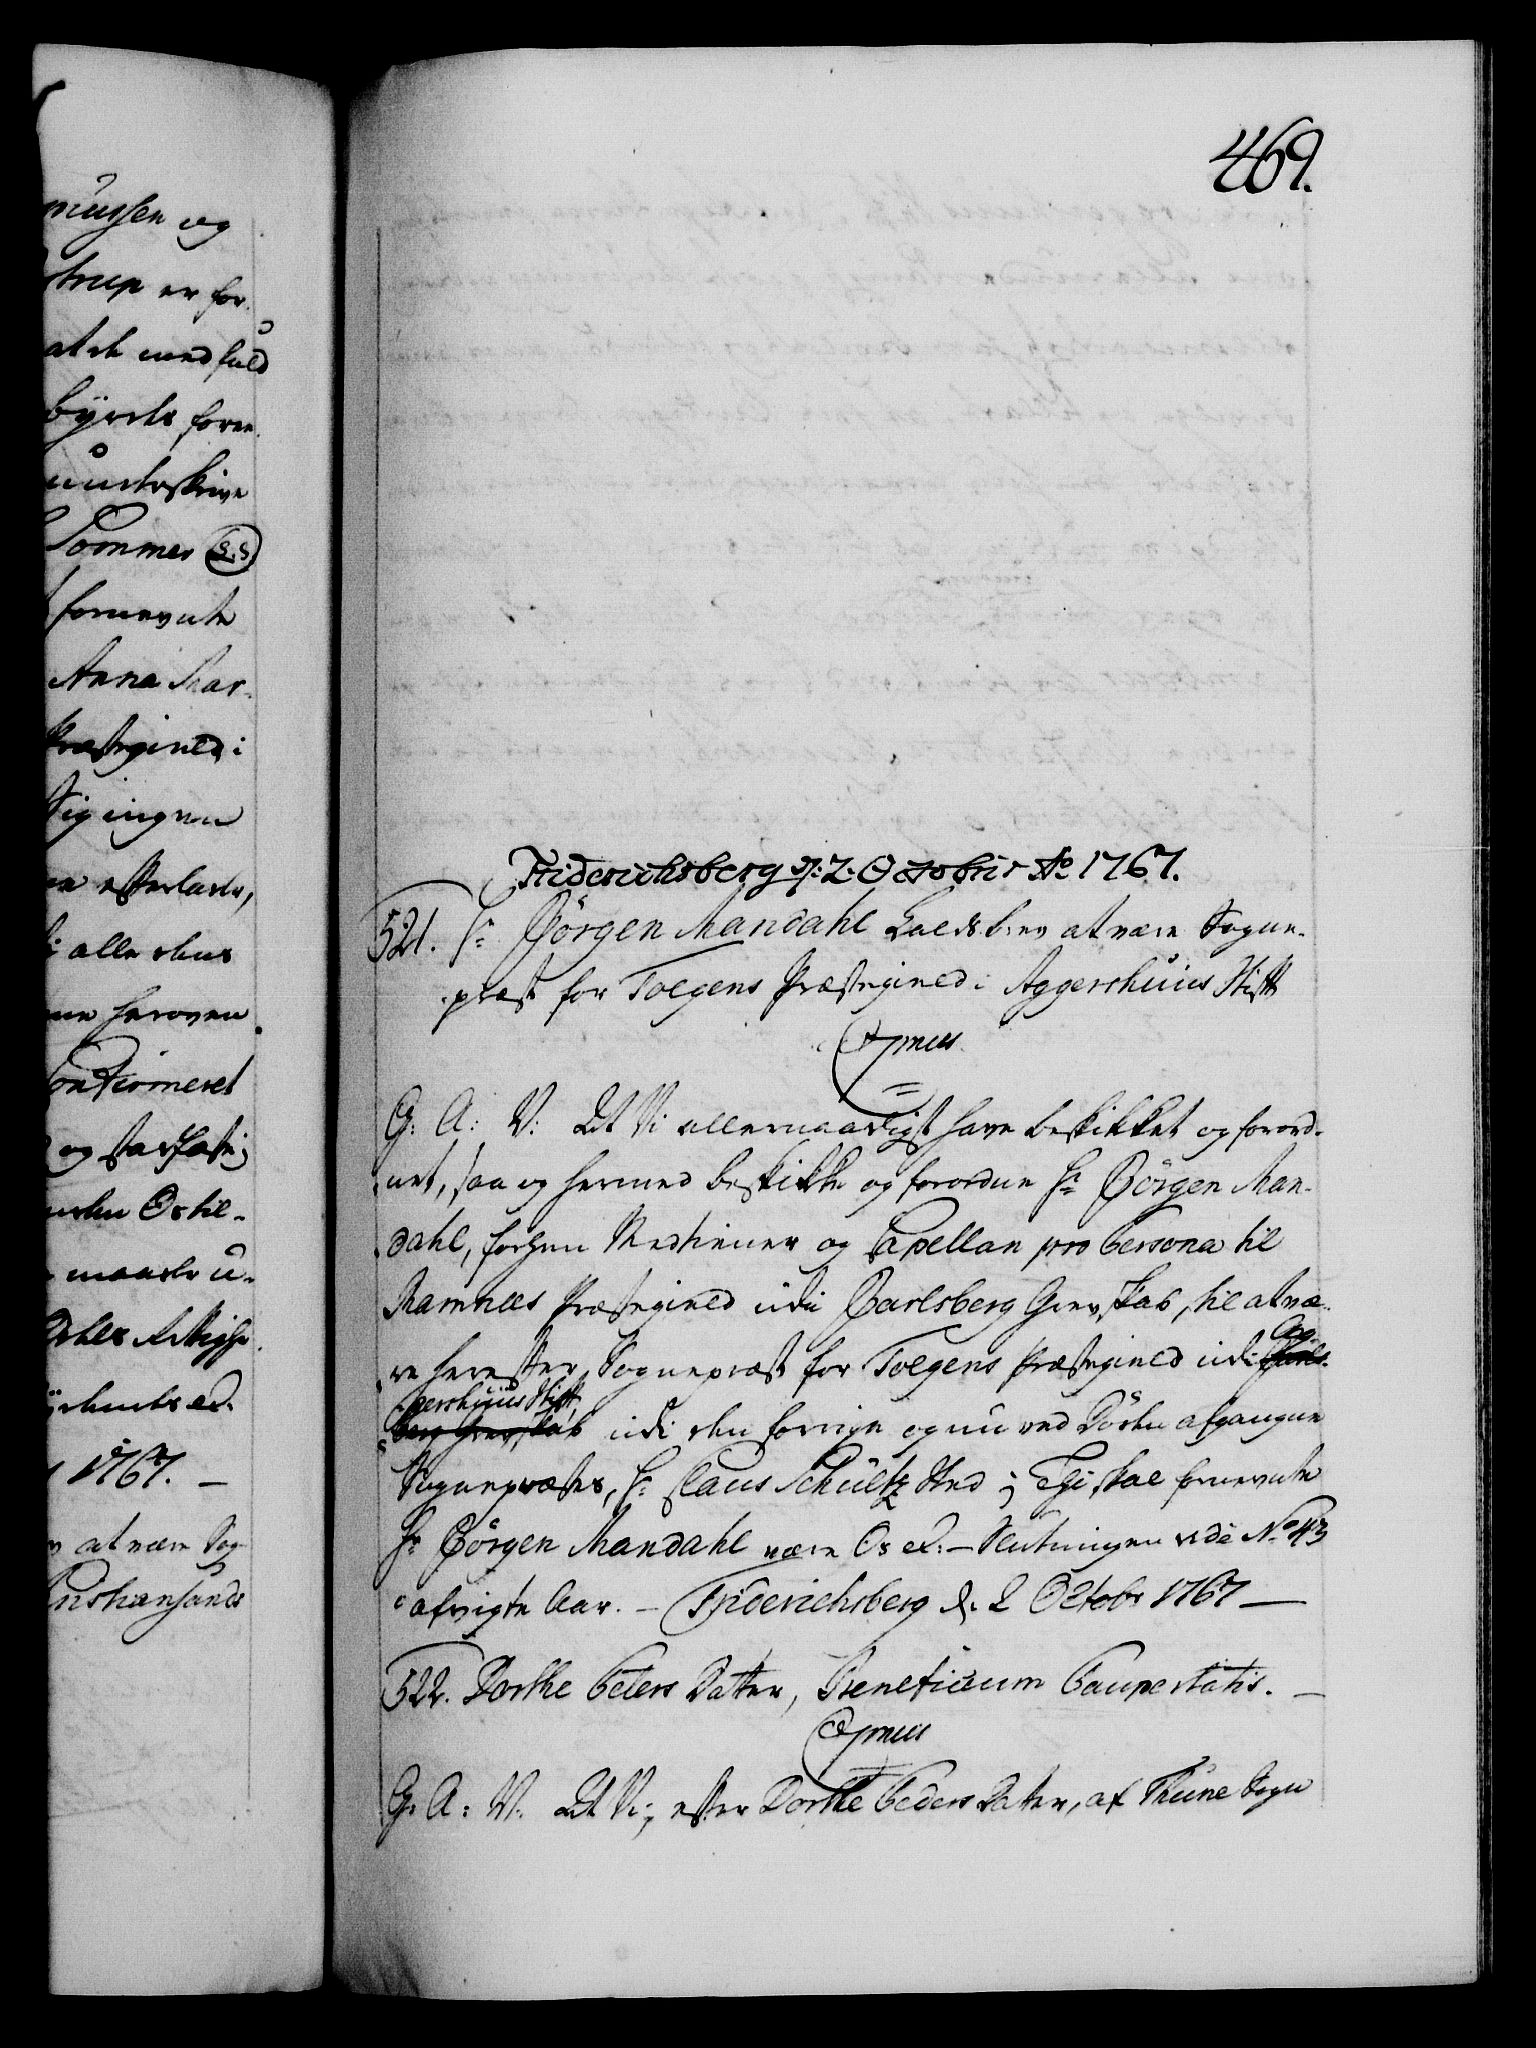 musen og
strup er for
at de med fuld
byrde foree
underskrive
Sommer S:S
fornevnte
Anna Mar-
Præstegield i
Sig ingen
efterlade,
i alle des
herover
Confirmeret
og stadfæste
Os til-
maade u-
1767. —
at være Sog-
Christiansands
469.
Friderichsberg d: 2. Octobris Ao 1767.
521. Hr Jörgen Mandahl Kaldsbrev at være Sogne-
præst for Tolgens Præstegield i Aggershuus Stift
G: A: V: At Vi allernaadigst have beskikket og forord-
net, saa og hermed beskikke og forordne Hr Jörgen Man-
dahl, forhen Medtiener og Capellan pro Persona til
Ramnæs Præstegield udi Jarlsberg Grevskab, til at væ-
re herefter Sognepræst for Tolgens Præstegield udi Jarls- Ag-
berg Grevskab gershuus Stift, udi den forrige og nu ved Döden afgangne
Sognepræstes, Hr Claus Schültz Sted; Thi skal fornevnte
Hr Jörgen Mandahl være Os ec: — Slutningen vide No 43
afvigte Aar. — Friderichsberg d. 2 Octobr 1767 —
522. Dorthe Peters Datter, Beneficium Paupertatis. —
G: A: V: At Vi, efter Dorthe Peders Datter, af Thune Sogn